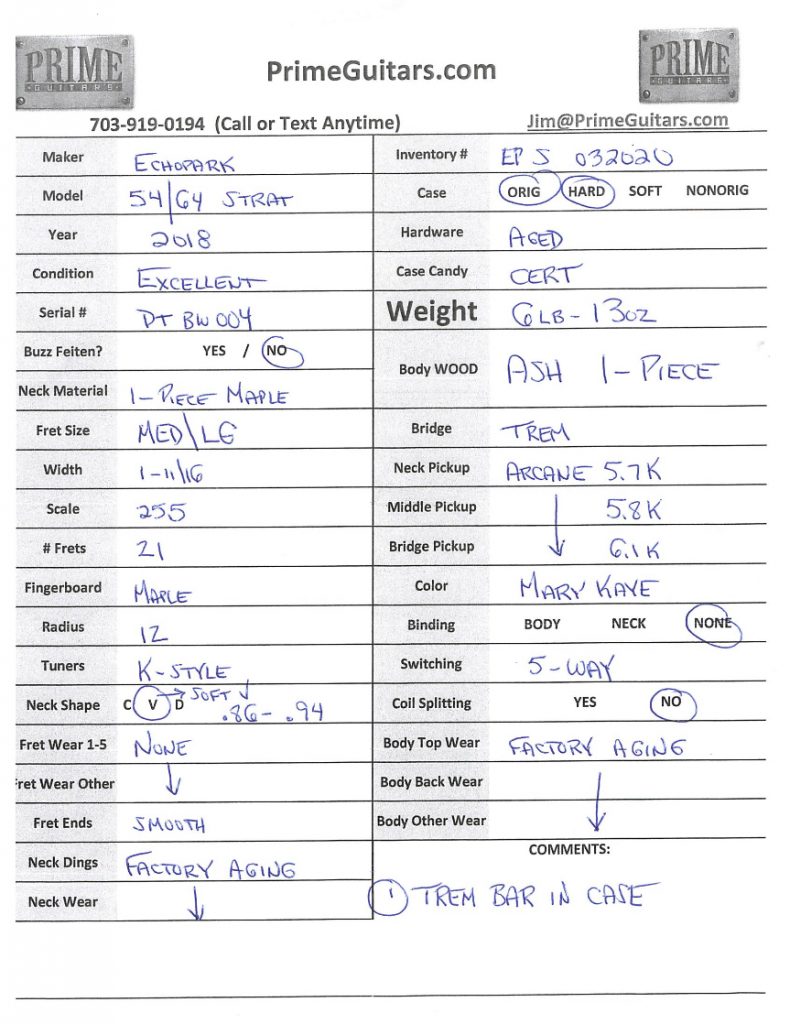 PRIME
GUITARS
PrimeGuitars.com
PRIME
GUITARS
703-919-0194 (Call or Text Anytime)
Jim@PrimeGuitars.com
Maker ECHOPARK
Model 54/64 STRAT
Year 2018
Condition EXCELLENT
Serial # DT BW 004
Buzz Feiten? YES / NO
Neck Material 1-PIECE MAPLE
Fret Size MED\LG
Width 1-11/16
Scale 255
# Frets 21
Fingerboard MAPLE
Radius 12
Tuners K-STYLE
Neck Shape C V D → SOFT ↓ .86-.94
Fret Wear 1-5 NONE
Fret Wear Other ↓
Fret Ends SMOOTH
Neck Dings FACTORY AGING
Neck Wear ↓
Inventory # EP S 032020
Case ORIG HARD SOFT NONORIG
Hardware AGED
Case Candy CERT
Weight 6LB-13OZ
Body WOOD ASH 1-PIECE
Bridge TREM
Neck Pickup ARCANE 5.7K
Middle Pickup 5.8K
Bridge Pickup ↓ 6.1K
Color MARY KAYE
Binding BODY NECK NONE
Switching 5-WAY
Coil Splitting YES NO
Body Top Wear FACTORY AGING
Body Back Wear
Body Other Wear ↓
COMMENTS:
1 TREM BAR IN CASE